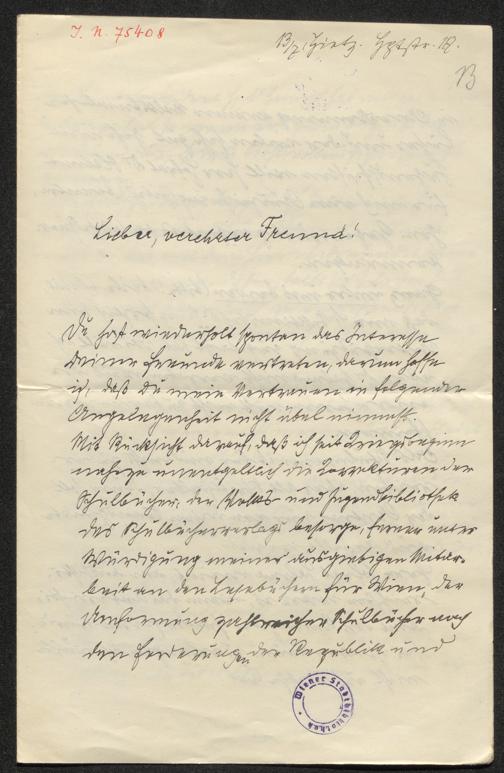 I. N. 75408
Hptstr. 18.
B
Lieber, verehrter Freund!
Du hast wiederholt spontan das Interesse
Deiner Freunde vertreten, darum hoffe
ich, daß Du mein Vertrauen in folgender
Angelegenheit nicht übel nimmst.
Mit Rücksicht darauf, daß ich seit Kriegsbeginn
nahezu unentgeltlich die Korrekturen der
Schulbücher, der Volks- und Jugendbibliothek
des Schulbücherverlags besorge, ferner unter
Würdigung meiner ausgiebigen Mitar-
beit an den Lesebüchern für Wien, der
Umformung zahlreicher Schulbücher nach
den Forderungen der Republik und
Wiener Stadtbibliothek